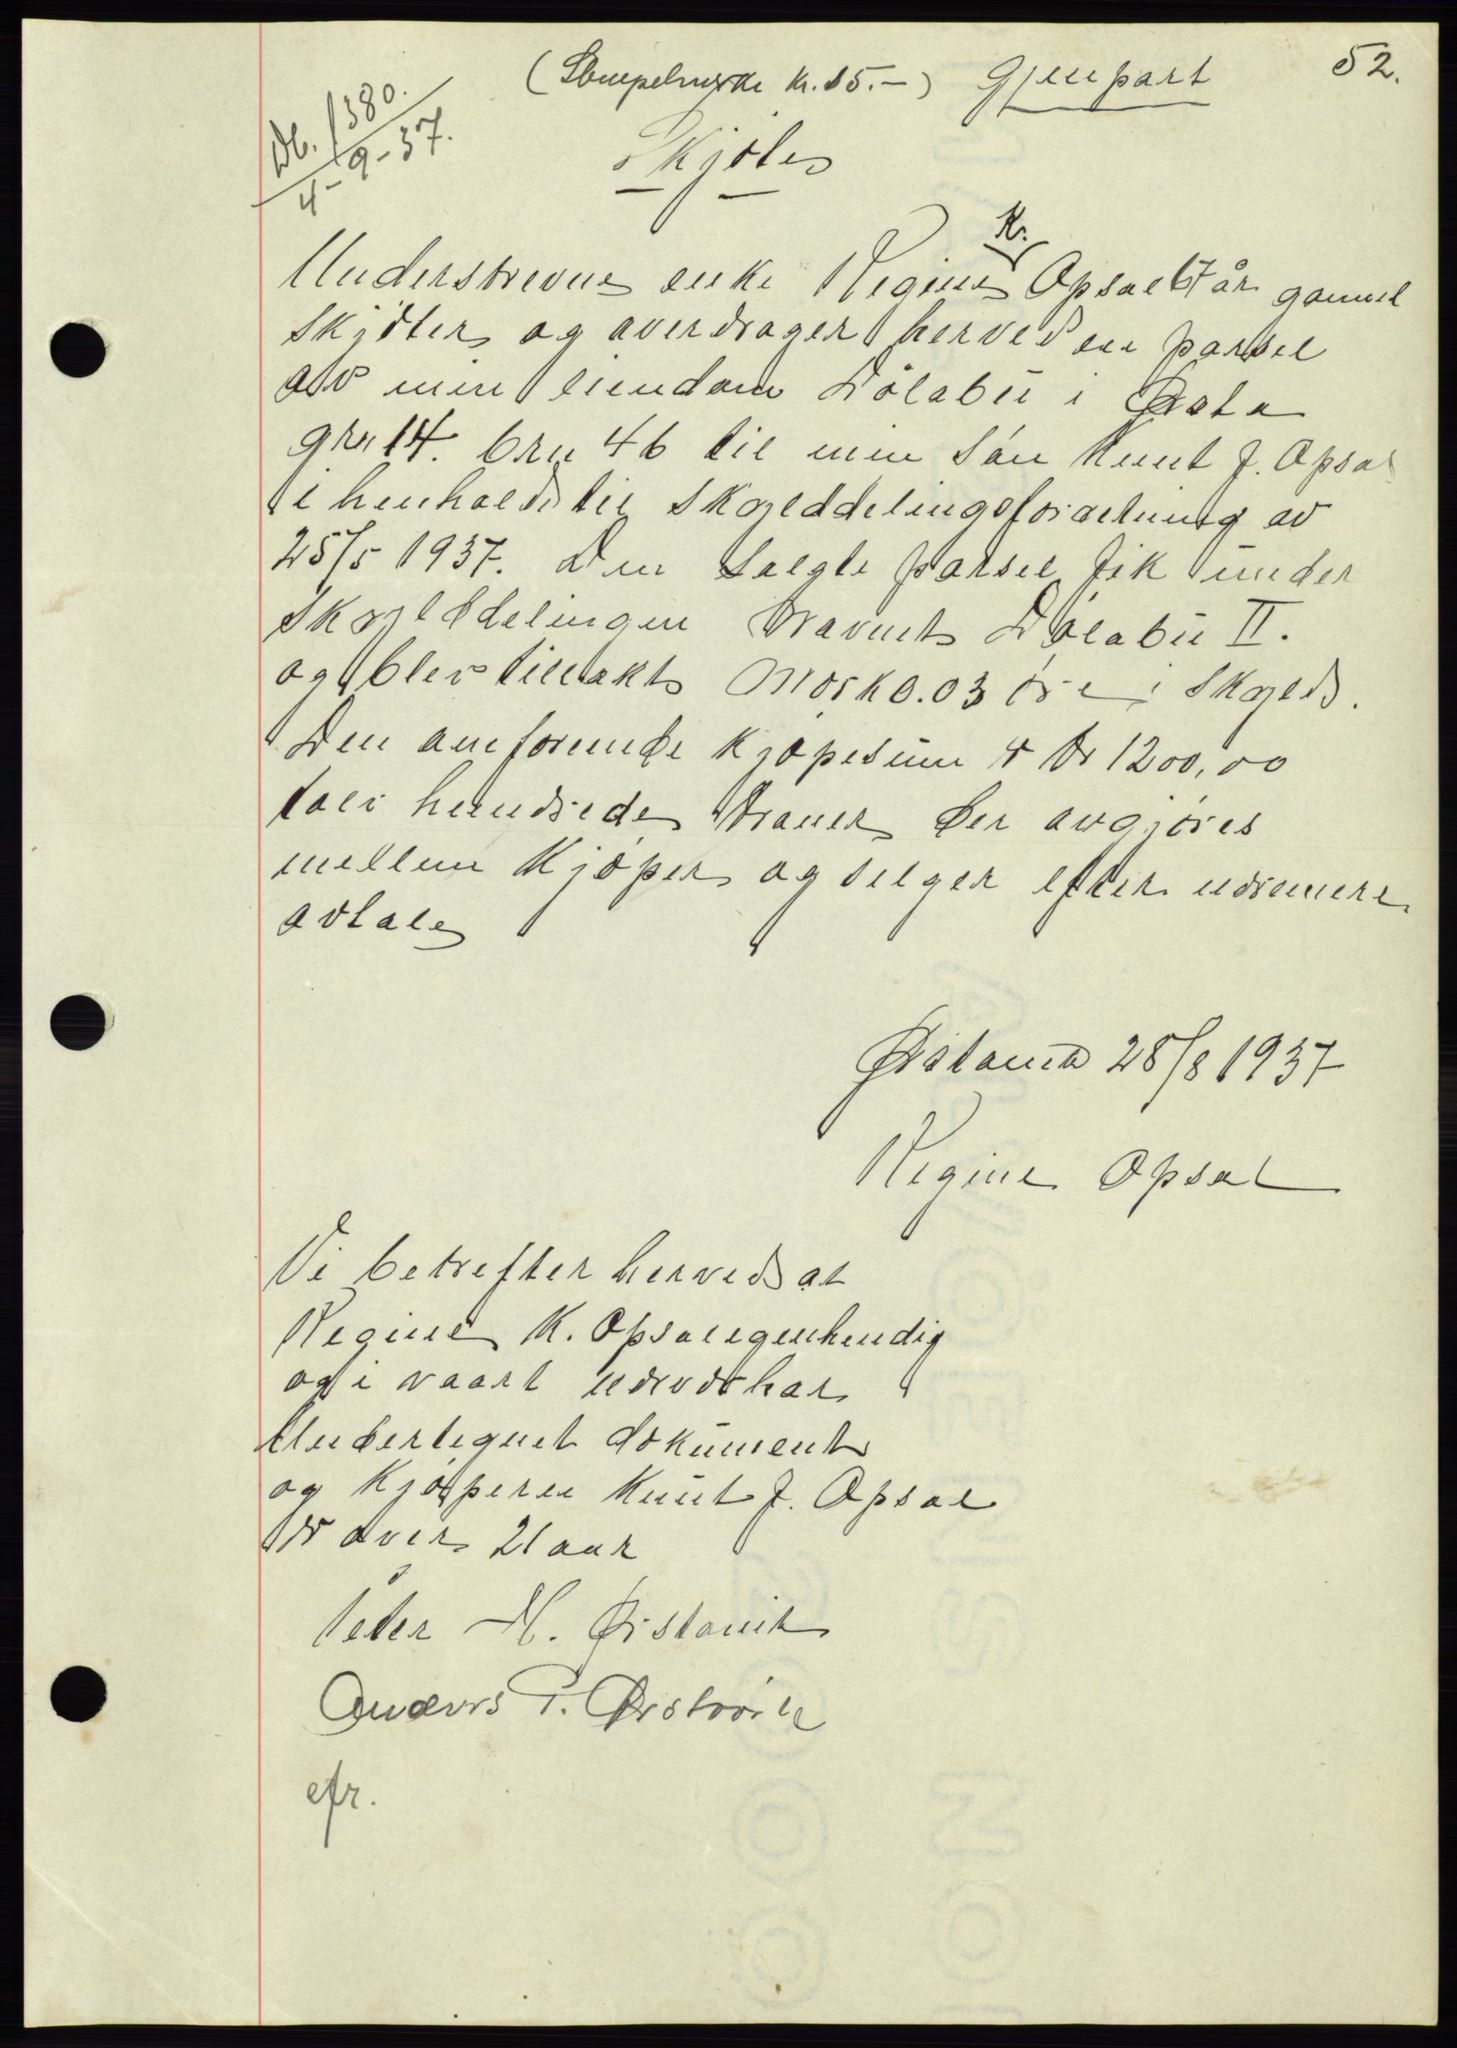 52.
(Stempelmerke kr. 15.-) Gjenpart
Db. 1380.
4-9-37.
Skjøte
Kr.
Understrevne enke Regine Opsal 67 år gammel
Skjøter og averdrager herved en parsel
av min eiendom Dölabu i Ørsta
gnr 14. brn 46 til min Sön Knut J. Opsal
i henhold til Skylddelingsforretning av
25/5 1937. Den Solgte parsel fik under
Skylddelingen Navnet Dölabu II.
og blev tillakt Mark 0.03 öre i Skyld.
Den omforende kjöpesum er Kr 1200,00
tolv hundrede kroner der avgjöres
mellem kjöper og selger efter nærmere
avtale
Ørstavik 28/8 1937
Regine Opsal
Vi betrefter herved at
Regine K. Opsal egenhendig
og i vaart nærvær har
Undertegnet dokument
og kjöperen Knut J. Opsal
er over 21 aar
Peter H. Ørstavik
Anders P. Ørstavik
efr.